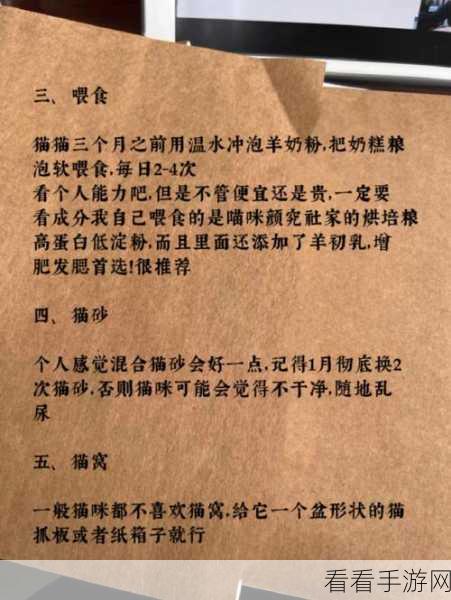 三、喂食
猫猫三个月之前用温水冲泡羊奶粉,把奶糕粮
泡软喂食,每日2-4次
看个人能力吧,但是不管便宜还是贵,一定要
看成分我自己喂食的是喵咪颜究社家的烘培粮
高蛋白低淀粉,而且里面还添加了羊初乳,增
肥发腮首选!很推荐
四、猫砂
个人感觉混合猫砂会好一点,记得1月彻底换2
次猫砂,否则猫咪可能会觉得不干净,随地乱
尿
五、猫窝
一般猫咪都不喜欢猫窝,给它一个盆形状的猫
抓板或者纸箱子就行
看看手游网